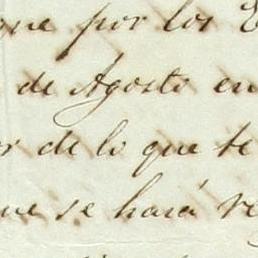 que por los
de Agosto en
de lo que te
que se hará